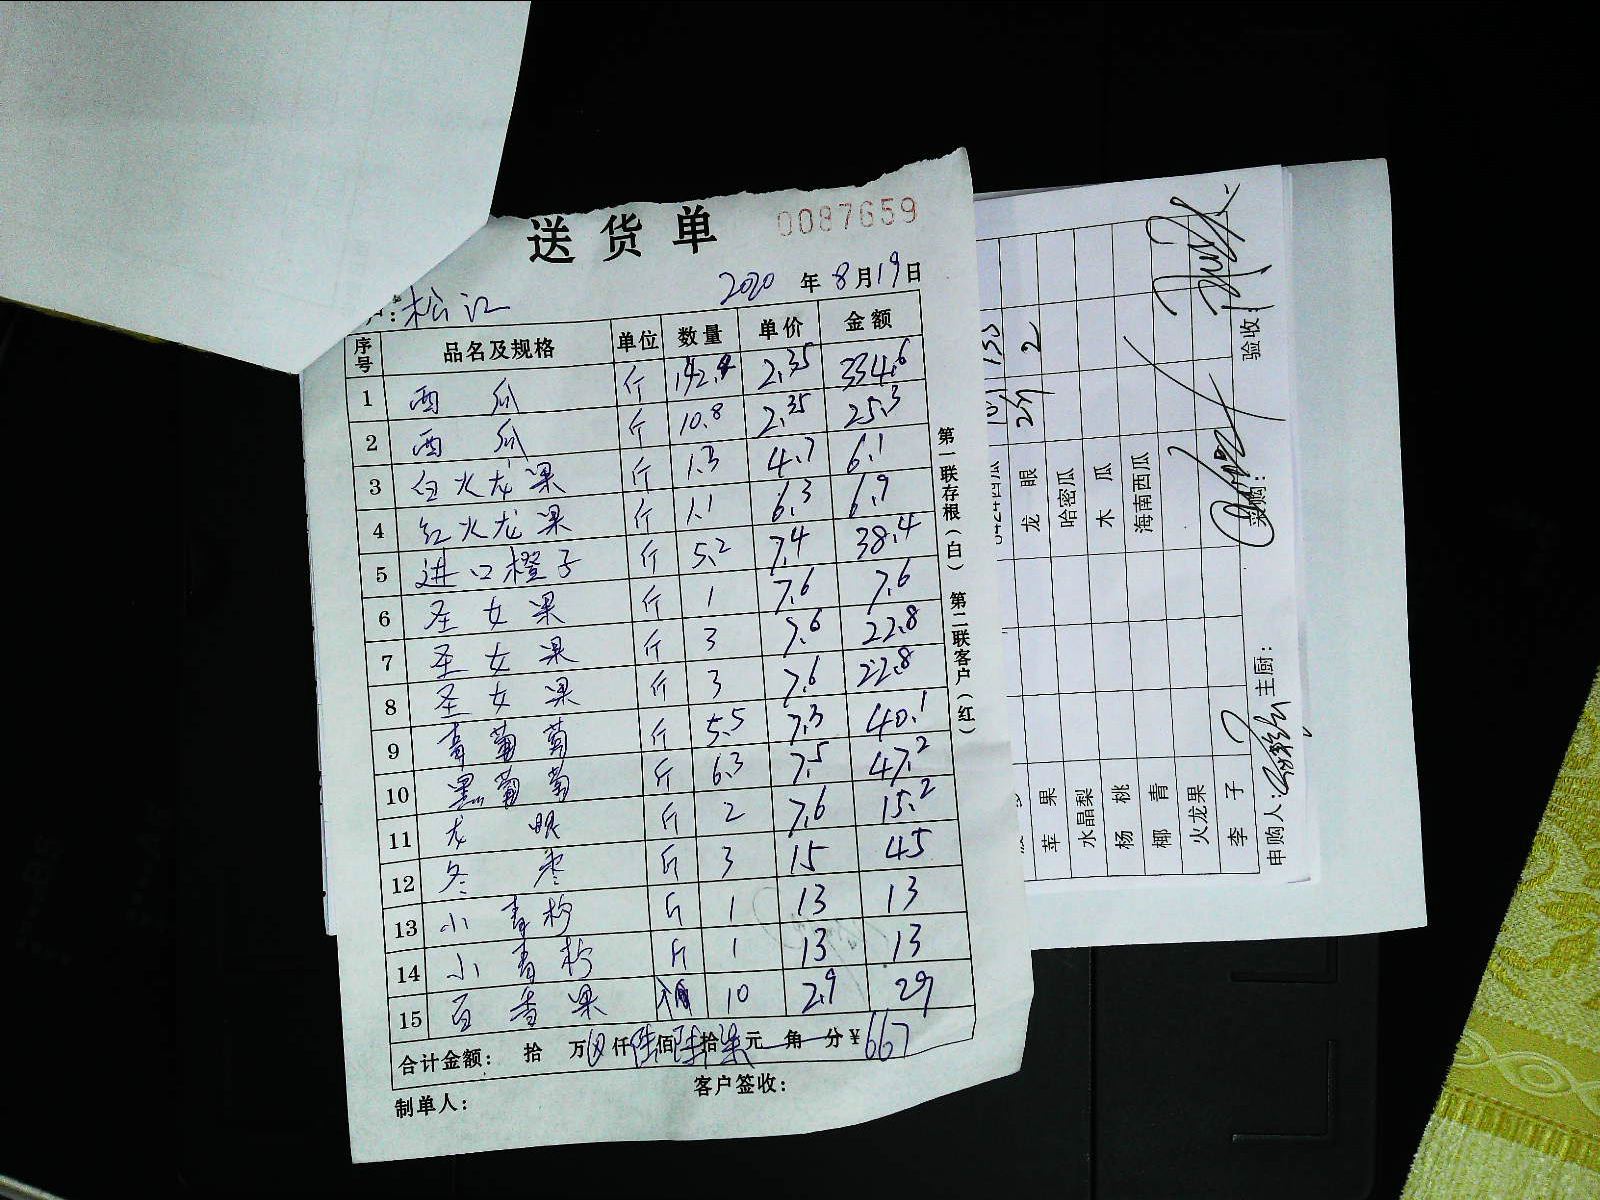 送货单 0087659
2020年8月19日
户:松江
序号 品名及规格 单位 数量 单价 金额
1 西瓜 斤 142.4 2.35 334.6
2 西瓜 斤 10.8 2.35 25.3
3 白火龙果 斤 1.3 4.7 6.1
4 红火龙果 斤 1.1 6.3 6.9
5 进口橙子 斤 5.2 7.4 38.4
6 圣女果 斤 1 7.6 7.6
7 圣女果 斤 3 7.6 22.8
8 圣女果 斤 3 7.6 22.8
9 青葡萄 斤 5.5 7.3 40.1
10 黑葡萄 斤 6.3 7.5 47.2
11 龙眼 斤 2 7.6 15.2
12 冬枣 斤 3 15 45
13 小青柠 斤 1 13 13
14 小青柠 斤 1 13 13
15 百香果 10 2.9 29
合计金额: 拾 万 仟陆佰陆拾柒元 角 分 ¥667
制单人: 客户签收:
第一联存根(白) 第二联客户(红)
苹果 龙眼 2斤 2
水晶梨 哈密瓜
杨桃 木瓜
椰青 海南西瓜
火龙果
李子
申购人: 主厨: 采购: 验收: